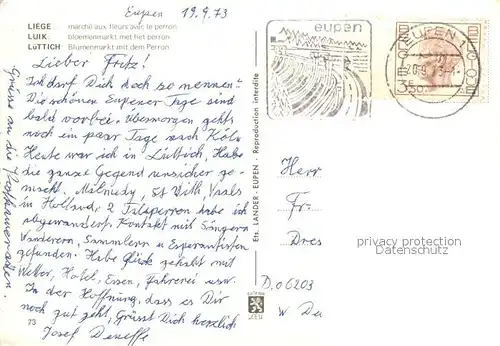 Eupen 19.9.73
LIEGE marché aux fleurs avec le perron
LUIK bloemenmarkt met het perron
LÜTTICH Blumenmarkt mit dem Perron
Lieber Fritz!
Ich darf Dich doch so nennen?
Die schönen Eupener Tage sind
bald vorbei. Übermorgen gehts
noch ein paar Tage nach Köln
Heute war ich in Lüttich, Habe
die ganze Gegend unsicher ge-
macht. Malmedy, St Vith, Vaals
in Holland, 2 Talsperren habe ich
abgewandert. Kontakt mit Sängern
Wanderern, Sammlern u Esperantisten
gefunden. Habe Glück gehabt mit
Wetter, Hotel, Essen, Fahrerei usw.
In der Hoffnung, dass es Dir
noch gut geht, Grüsst Dich herzlich
Josef
Grüsse an die
73
Ets. LANDER - EUPEN - Reproduction interdite
eupen
EUPEN 1
20-9
3,50
Herr
Fr.
Dres
privacy protection
Datenschutz
D.06203
w De